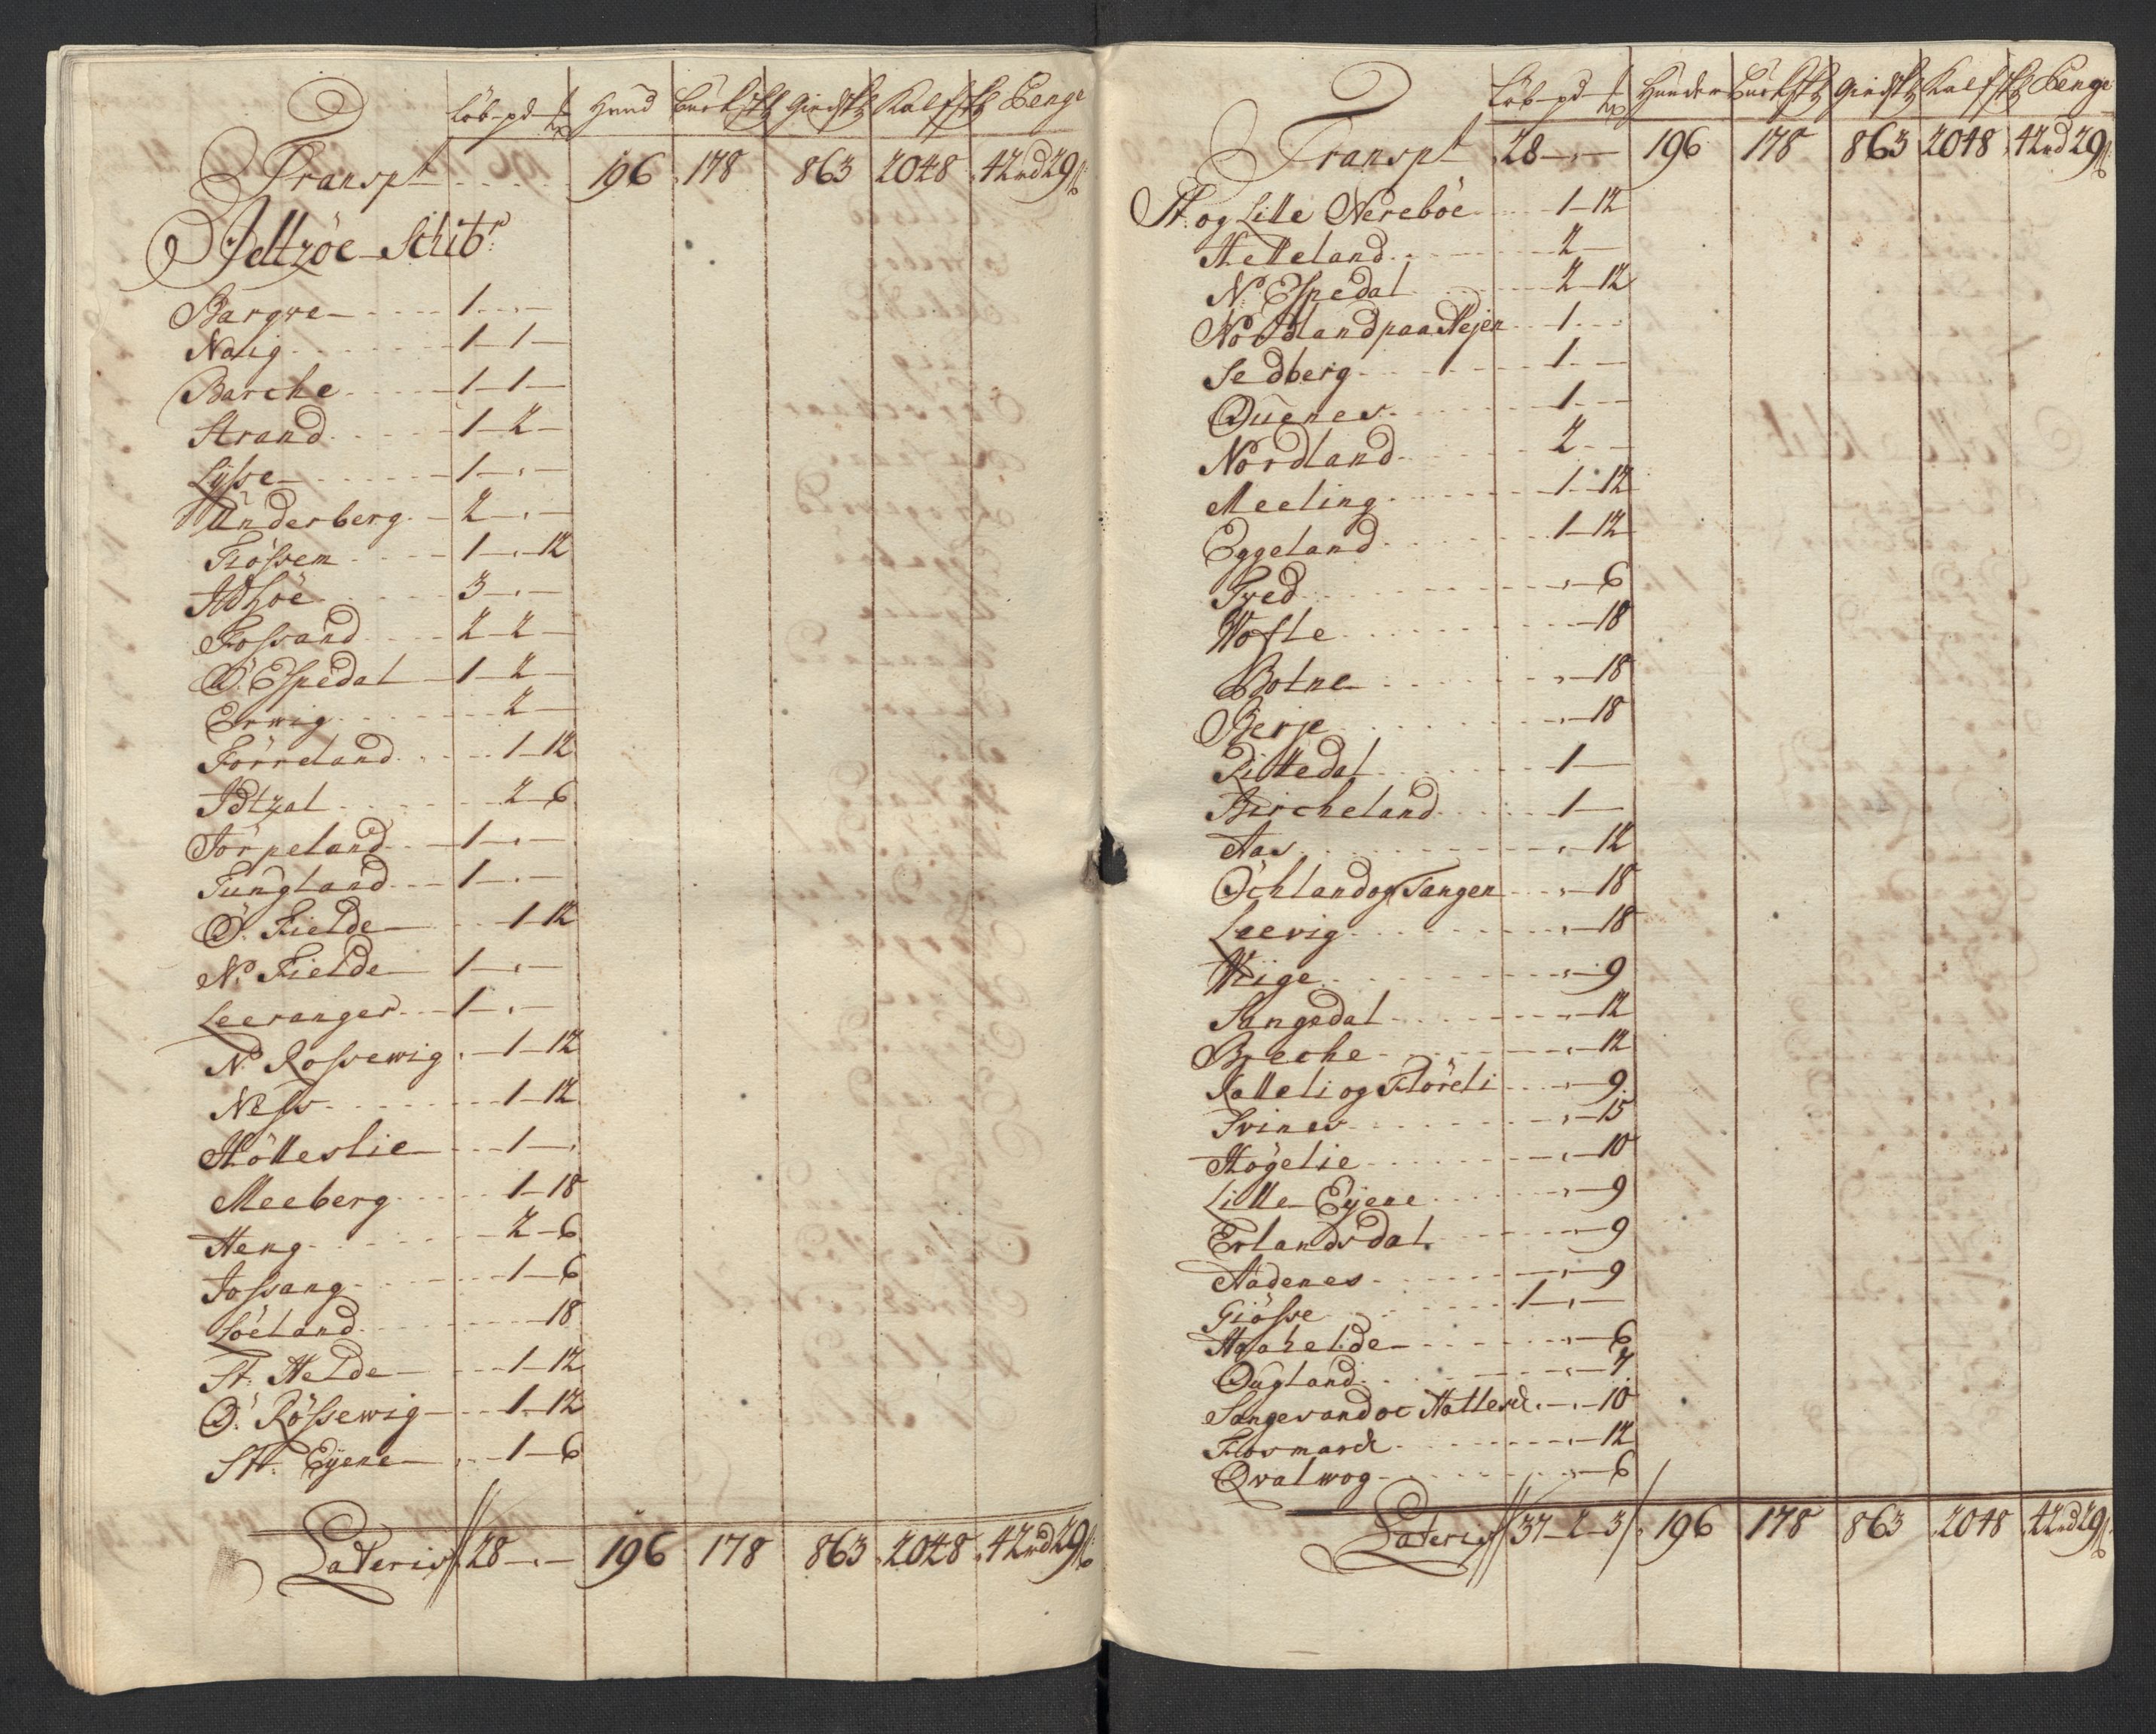 Löb-pd-℔ Hund Buckskd Giedskd Kalfskd Penge
Transpt ..... 196 178 863 2048 42rd 29ß
Idtzöe Schibr:
Bargve 1-"-
Naig 1-1-
Barche 1-1-
Strand 1-2-
Lysse 1-"-
Underberg 2-"-
Fiössem 1-"-12
Idsöe 3-"-
Fossand 2-2-
Ö: Espedal 1-2-
Erwig 2-
Förreland 1-12
Idtzal 2-6
Törpeland 1-"-
Tungland 1-"-
Ö: Fielde 1-12
N: Fielde 1-"-
Leeranger 1-"-
N: Rossewig "-1-12
Ness 1-12
Hölleslie 1-"
Meeberg 1-18
Heng 2-6
Jossang 1-6
Löeland 18
St: Helde 1-12
Ö: Rössewig 1-12
St: Eyene 1-6
Lateris 28-"- 196 178 863 2048 42rd 29ß
Löb-pd-℔ Hunder Buckskd Giedskd Kalfskd Penge
Transpt 28-"- 196 178 863 2048 42rd 29ß
St: og Lille Nereböe 1-12
Helleland 2-
N: Espedal 2-12
Nordlandpaa Hejen 1-
Sedberg 1-
Quenes 1-
Nordland 2-
Meeling 1-12
Eggeland 1-12
Tved "-6
Wofte 18
Botne "-18
Berje "-18
Littedal 1-
Bircheland 1-
Aas "-12
Öchland og Tangen "-18
Leevig "-18
Wiige "-9
Sangedal "-12
Breche "-12
Kalleli og Flöreli 9
Svines "-15
Högelie "-10
Lille Eyene "-9
Erlandsdal 9
Aadenes "-9
Giösse 1-"-
Haahelde "-6
Dugland "-7
Sangesand oc Hattesd. "-10
Flosmarck "-12
Qvalwog "-6
Lateris 37-2-3 196 178 863 2048 42rd 29ß